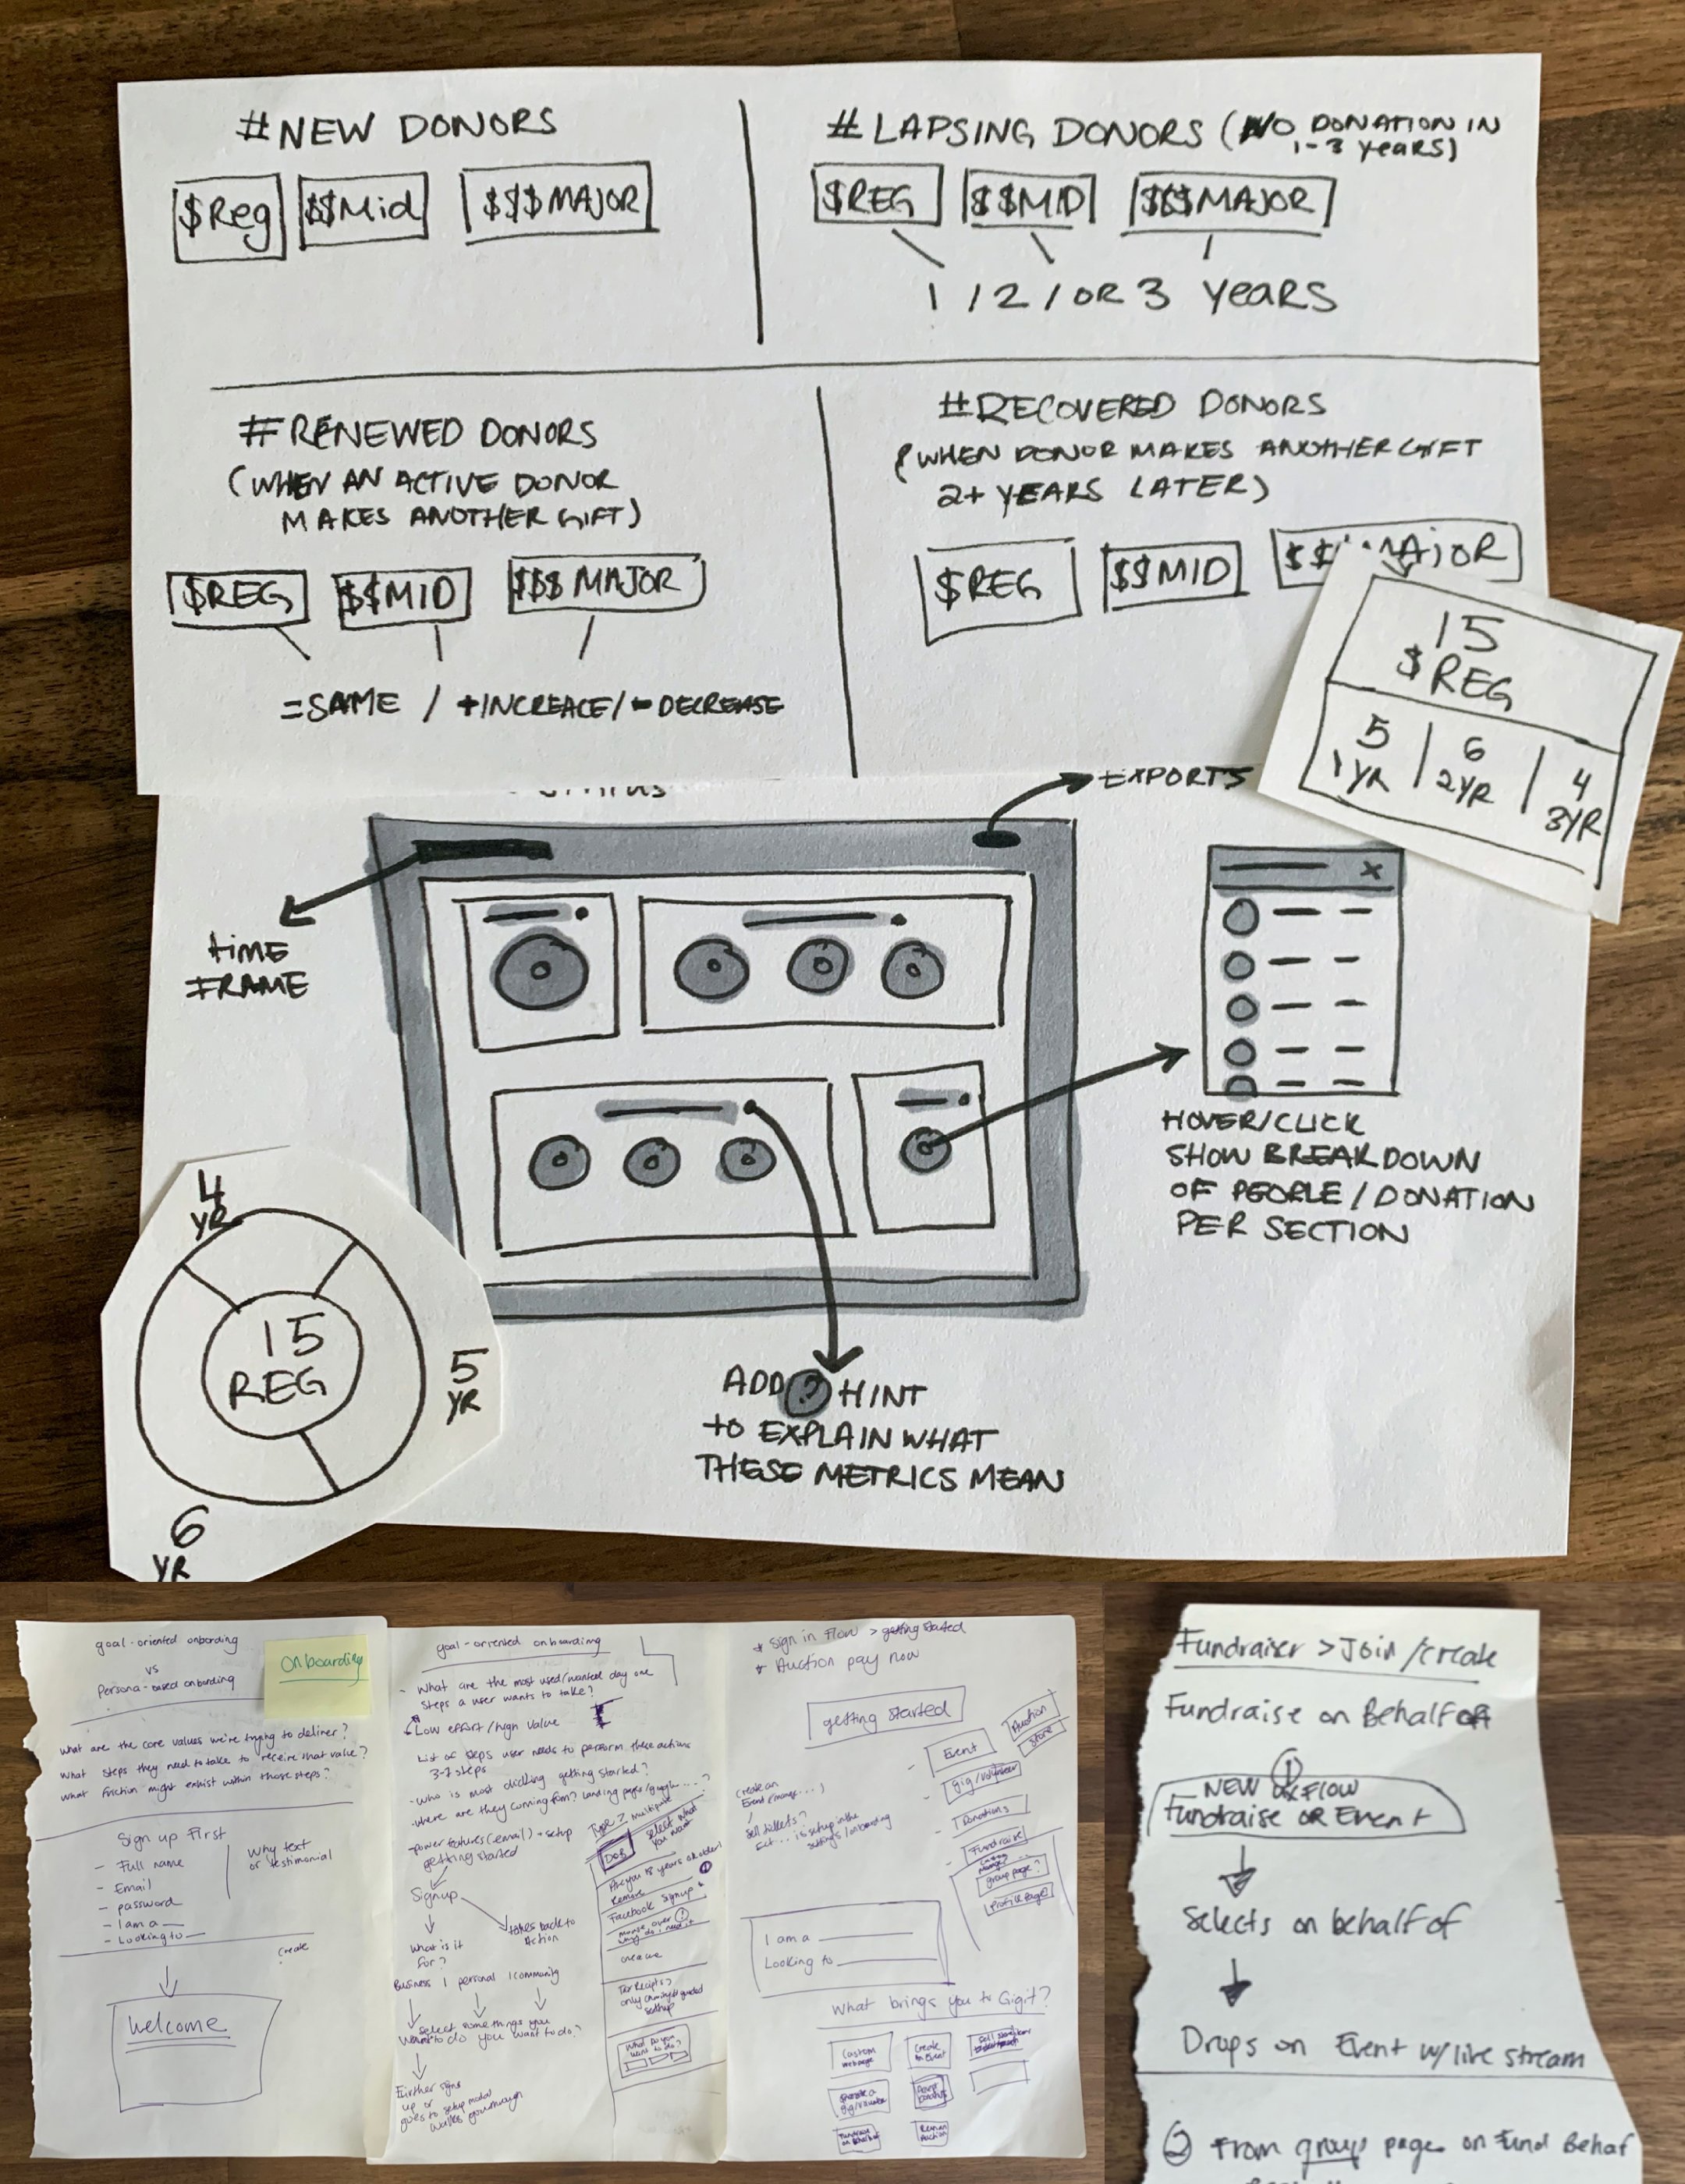 #NEW DONORS
$Reg $$Mid $$$MAJOR
#LAPSING DONORS (NO DONATION IN
1-3 years)
$REG $$MID $$$MAJOR
1 / 2 / OR 3 years
#RENEWED DONORS
(WHEN AN ACTIVE DONOR
MAKES ANOTHER GIFT)
$REG $$MID $$$MAJOR
=SAME / +INCREACE/ -DECREASE
#RECOVERED DONORS
(WHEN DONOR MAKES ANOTHER GIFT
2+ YEARS LATER)
$REG $$MID $$ MAJOR
15
$REG
5 | 6 | 4
1YR 2YR 3YR
EXPORTS
TIME
FRAME
X
HOVER/CLICK
SHOW BREAKDOWN
OF PEOPLE/DONATION
PER SECTION
ADD ? HINT
TO EXPLAIN WHAT
THESE METRICS MEAN
4
YR
15
REG
5
YR
6
YR
goal-oriented onbording
vs
persona-based onbording
onboarding
what are the core values we're trying to deliver?
what steps they need to take to receive that value?
what friction might exhist within those steps?
Sign up First
- Full name
- Email
- password
- I am a
- Looking to
Why text
or testimonial
create
welcome
goal-oriented onboarding
- What are the most used/wanted day one
steps a user wants to take?
Low effort/high value
List of steps user needs to perform these actions
3-7 steps
- who is most clicking getting started?
- where are they coming from? Landing pages/google....?
-power features (email) - setup
getting started
Signup
takes back to
Action
What is it
for?
Business | personal | community
Select some things you
want to do you want to do?
Further signs
up or
goes to setup modal
walks you through
Type > Multiple
DOB
select what
you want
Are you 18 years or older?
Remove
Facebook signup
mouse over
why do i need it
Tax Reciepts >
only charity guided
setup
What do you
want to do?
* Sign in Flow > getting started
* Auction pay now
getting started
Event
Auction
store
gig/volunteer
Donations
Fundraise
group page?
profile page?
create an
Event (manage....)
sell tickets?
Ect... is setup in the
settings/onboarding
I am a
Looking to
What brings you to Gigit?
Custom
webpage
Create
an Event
Fundraise
on behalf of
Run an
Auction
Fundraiser > Join / create
Fundraise on Behalf of
1
NEW FLOW
Fundraise OR Event
Selects on behalf of
Drops on Event w/ live stream
2 From group page on Fund Behaf